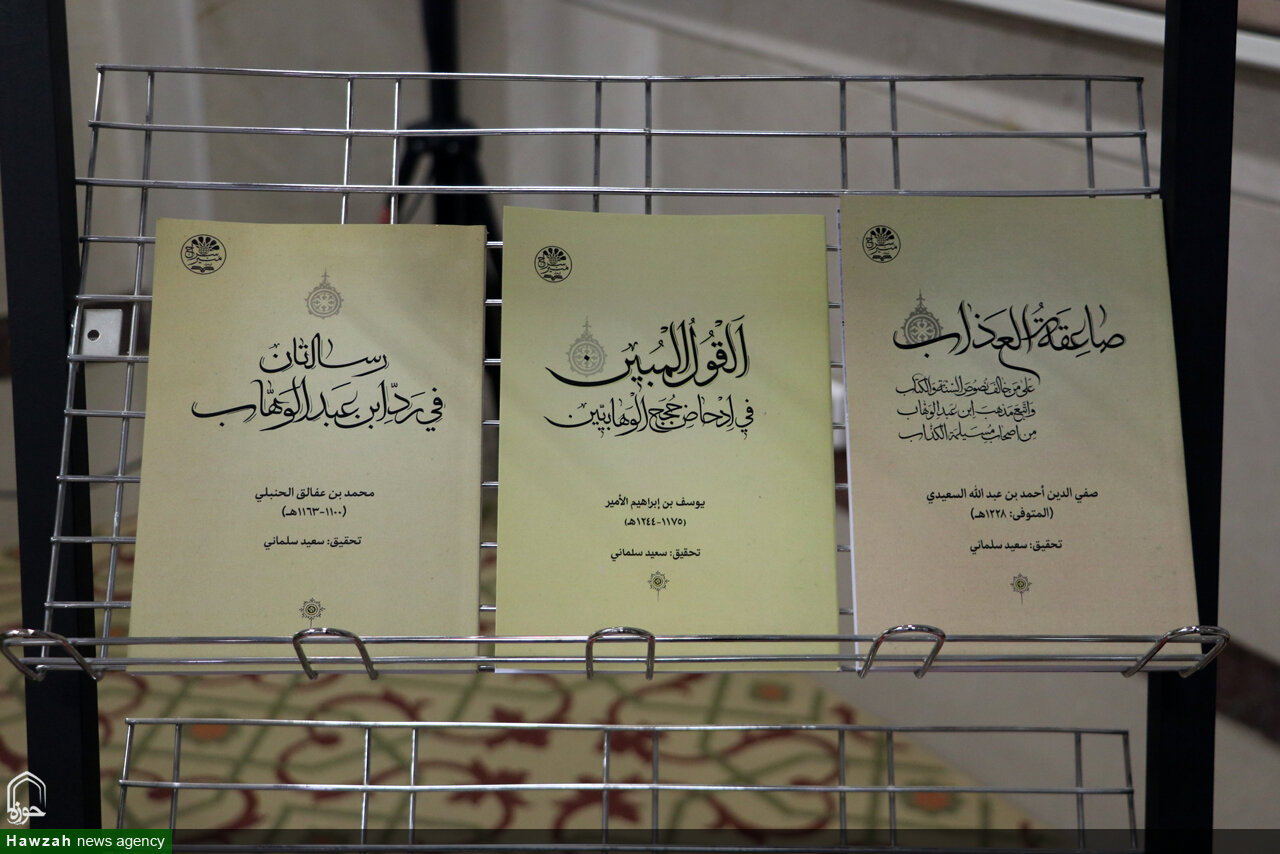 صاعقة العذاب
على من خالف نصوص السنة والكتاب
واتبع مذهب ابن عبد الوهاب
من أصحاب مسيلمة الكذاب
صفي الدين أحمد بن عبد الله السعيدي
(المتوفى: ١٢٢٨هـ)
تحقيق: سعيد سلماني
اَلقَولُ المُبين
في إدحاض حُجج الوهابيّين
يوسف بن إبراهيم الأمير
(١١٧٥-١٢٤٤هـ)
تحقيق: سعيد سلماني
رسالتان
في رَدّ ابن عَبد الوهّاب
محمد بن عفالق الحنبلي
(١١٠٠-١١٦٣هـ)
تحقيق: سعيد سلماني
حوزه
Hawzah news agency